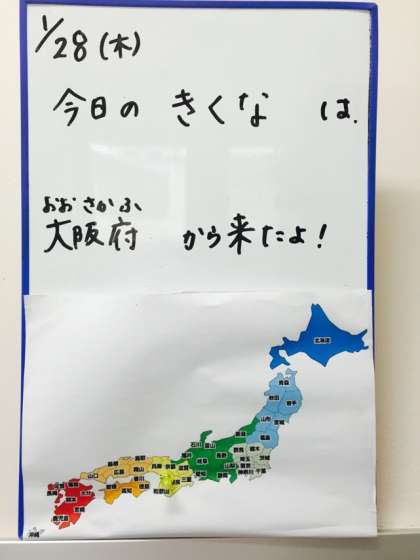 1/28(木)
今日の きくな は、
おおさかふ
大阪府 から来たよ!
北海道
青森
秋田
岩手
山形
宮城
福島
新潟
石川
富山
群馬
栃木
福井
長野
埼玉
茨城
岐阜
山梨
東京
千葉
愛知
静岡
神奈川
島根
鳥取
兵庫
京都
滋賀
広島
岡山
山口
香川
大阪
奈良
三重
愛媛
高知
徳島
和歌山
福岡
佐賀
長崎
大分
熊本
宮崎
鹿児島
沖縄